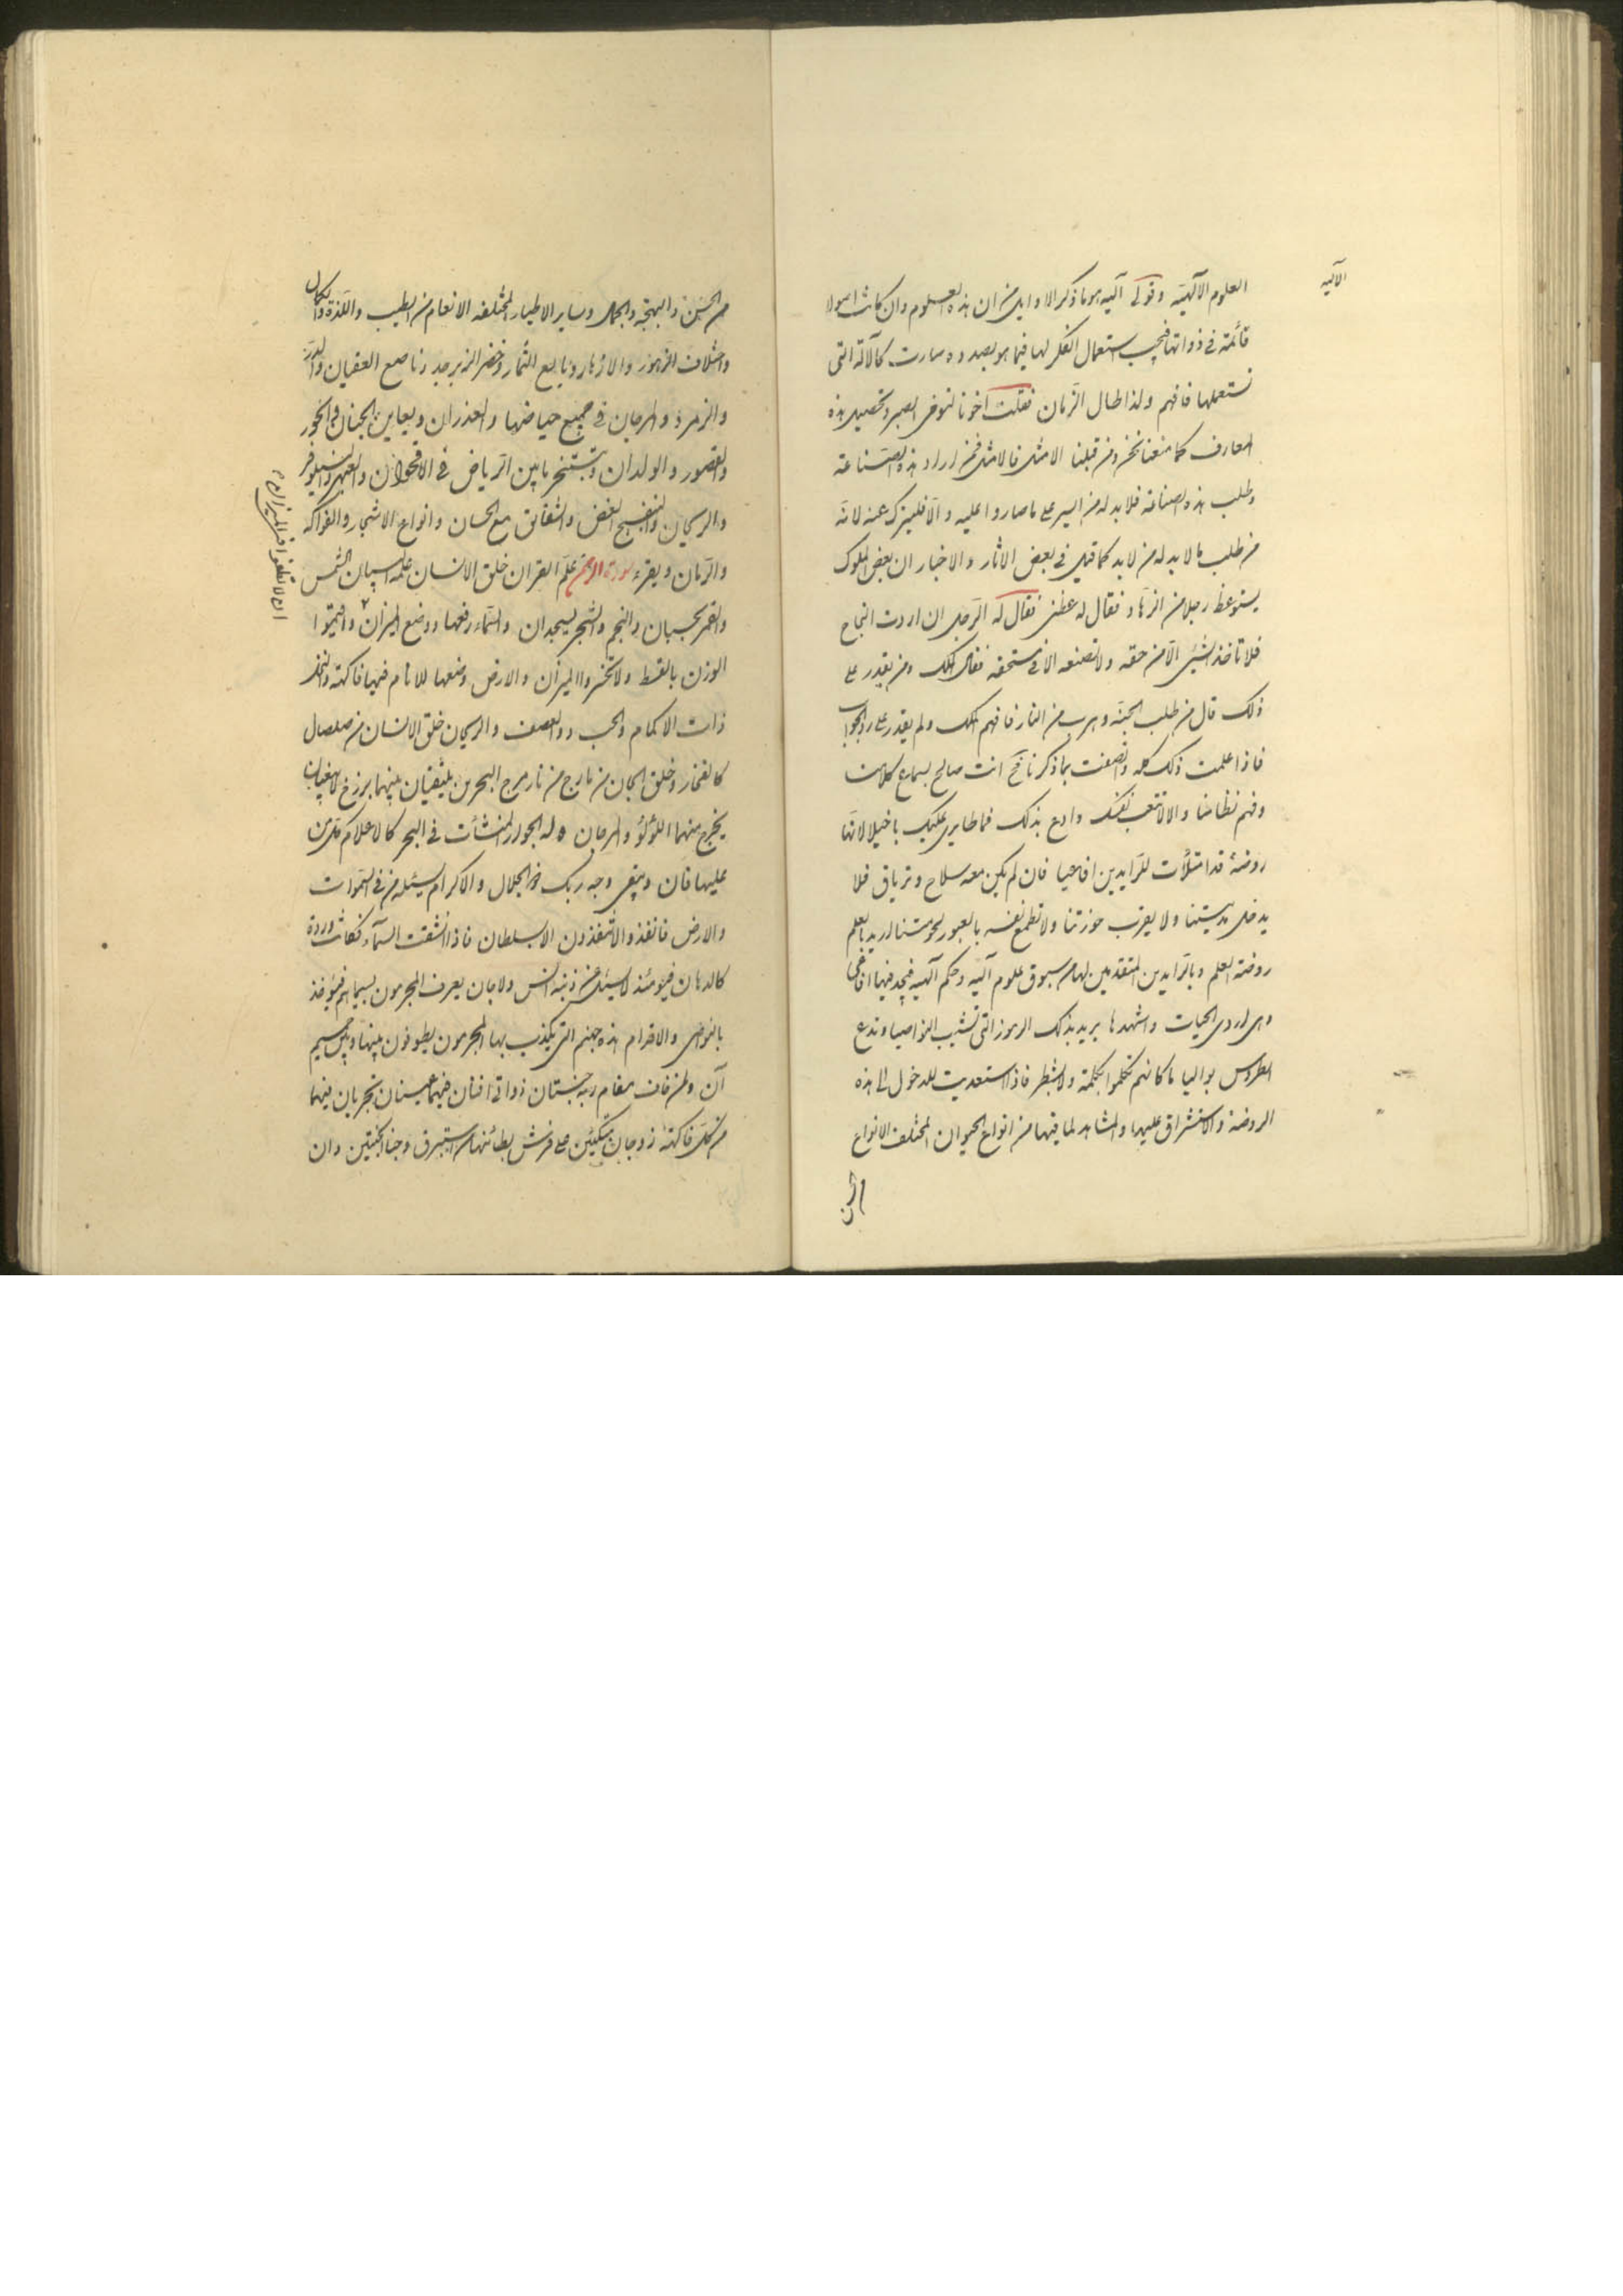 الآليه
العلوم الآلهيّه وقولى آليه هو ما ذكر الاوايل من ان هذه العلوم وان كانت اصولا
قائمة فى ذواتها فيجب استعمال الفكر لها فيما هو بصدده صارت كالآلة التى
نستعملها فافهم ولذا طال الزمان فقلت اخونا لنهوض الصبر وتحصيل هذه
المعارف كما منعنا نحن ومن قبلنا الامثل فالامثل فمن اراد هذه الصناعة
وطلب هذه الصناعة فلابد له من السير على ما صاروا عليه والّا فليترك عنه لانّه
من طلب ما لابد له من لابد كما قيل فى بعض الاثار والاخبار ان بعض الملوك
يستوعظ رجلا من الزهّاد فقال له عظنى فقال له الرّجل ان اردت النجاح
فلا تاخذ الشيئ الّا من حقه ولا تصنعه الا فى مستحقه فقال الملك ومن يقدر على
ذلك قال من طلب الجنّة وهرب من النار فافهم الملك ولم يقدر على رد الجواب
فاذا علمت ذلك كله واتصفت بما ذكرنا فح انت صالح لسماع كلامنا
وفهم نظامنا والا لا تتعب نفسك وادع بذلك فما طايرى عليك باخيلا لانّها
روضة قد امتلأت للرّايدين افاعيا فان لم يكن معه سلاح وترياق فلا
يدخل مدينتنا ولا يقرب حوزتنا ولا تطمع نفسه بالعبور لحومتنا اريد بالعلم
روضة العلم وبالرّايدين المتقدمين لها من سبوق علوم آليّه وحكم آلهيه فيجد فيها افاعى
وهى اردى الحيات واشهدها يريد بذلك الرموز التى تشيب النواصيا وتدع
الطروس بواليا ما كانهم تكلموا بكلمة ولا شطر فاذا استعديت للدخول الى هذه
الروضة والاستشراق عليها والمشاهد لما فيها من انواع الحيوان المختلف الانواع
من الحسن والبهجة والجمال وساير الاطيار المختلفه الانغام من الطيب واللذة والكمال
واختلاف الزهور والازهار ويانيع الثمار وخضر الزبرجد وناصع العقيان والدر
والزمرد والمرجان فى جميع حياضها والغدران ويعاين الجنان والحور
والقصور والولدان ويتبختر ما بين الرياض فى الاقحوان والعبهر والنيلوفر
والريحان والبنفسج الغض والشقايق مع الحسان وانواع الاشجار والفواكه
والرّمان ويقرء سورة الرحمن علّم القران خلق الانسان علّمه البيان الشمس
والقمر بحسبان والنجم والشجر يسجدان والسّماء رفعها ووضع الميزان واقيموا
ان لا تطغوا فى الميزان
الوزن بالقسط ولا تخسروا الميزان والارض وضعها للانام فيها فاكهة والنخل
ذات الاكمام والحب ذو العصف والريحان خلق الانسان من صلصال
كالفخار وخلق الجان من مارج من نار مرج البحرين يلتقيان بينهما برزخ لا يبغيان
يخرج منهما اللؤلؤ والمرجان وله الجوار المنشأت فى البحر كالاعلام كل من
عليها فان ويبقى وجه ربك ذو الجلال والاكرام يسئله من فى السموات
والارض فانفذوا لا تنفذون الا بسلطان فاذا انشقت السّمآء فكانت وردة
كالدهان فيومئذ لا يسئل عن ذنبه انس ولا جان يعرف المجرمون بسيماهم فيؤخذ
بالنواصى والاقدام هذه جهنم التى يكذب بها المجرمون يطوفون بينها وبين حميم
آن ولمن خاف مقام ربه جنتان ذواتا افنان فيهما عينان تجريان فيهما
من كل فاكهة زوجان متكئين على فرش بطائنها من استبرق وجنا الجنتين دان